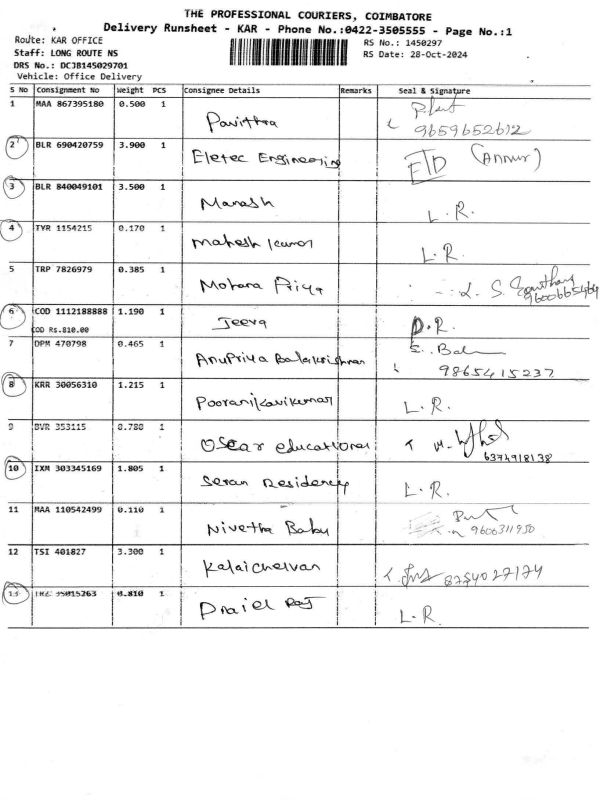 THE PROFESSIONAL COURIERS, COIMBATORE
Delivery Runsheet - KAR - Phone No.:0422-3505555 - Page No.:1
Route: KAR OFFICE
RS No.: 1450297
Staff: LONG ROUTE NS
RS Date: 28-Oct-2024
DRS No.: DCJB145029701
Vehicle: Office Delivery
S No Consignment No Weight PCS Consignee Details Remarks Seal & Signature
1 MAA 867395180 0.500 1 Pavithra 9659652612
2 BLR 690420759 3.900 1 Eletec Engineering ETD (Annur)
3 BLR 840049101 3.500 1 Manash L.R.
4 TYR 1154215 0.170 1 Mahesh kumar L.R.
5 TRP 7826979 0.385 1 Mohara Priya
6 COD 1112188888 1.190 1 Jeeva D.R.
COD Rs.810.00
7 DPM 470798 0.465 1 AnuPriya Balakrishnan 9865415237
8 KRR 30056310 1.215 1 Pooranikavikumar L.R.
9 BVR 353115 0.780 1 Oscar educational 6374918138
10 IXM 303345169 1.805 1 Seran Residency L.R.
11 MAA 110542499 0.110 1 Nivetha Babu 9606311950
12 TSI 401827 3.300 1 Kalaichelvan 8754027174
13 35015263 0.810 1 Raj L.R.